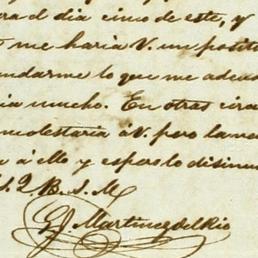 para el dia cinco de este, y
me haria V. un positi
ndarme lo que me adeu
ia mucho. En otras circ
molestaria á V. pero la ne
a á ello y espero lo disimu
S. Q. B. S. M.
G. Martinez del Rio